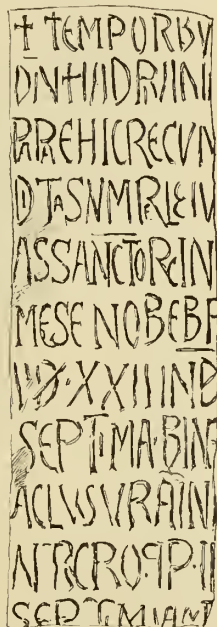 † TEMPORIBV
DN HADRIANI
PAPAE HIC RECVN
DITA SVNT RELEIV
AS SANCTOR IN
MESE NOBEBR
XXII IND
SEPTIMA BIN
ACLVSVRA IN
NTRCRO
SEPTIMIAN